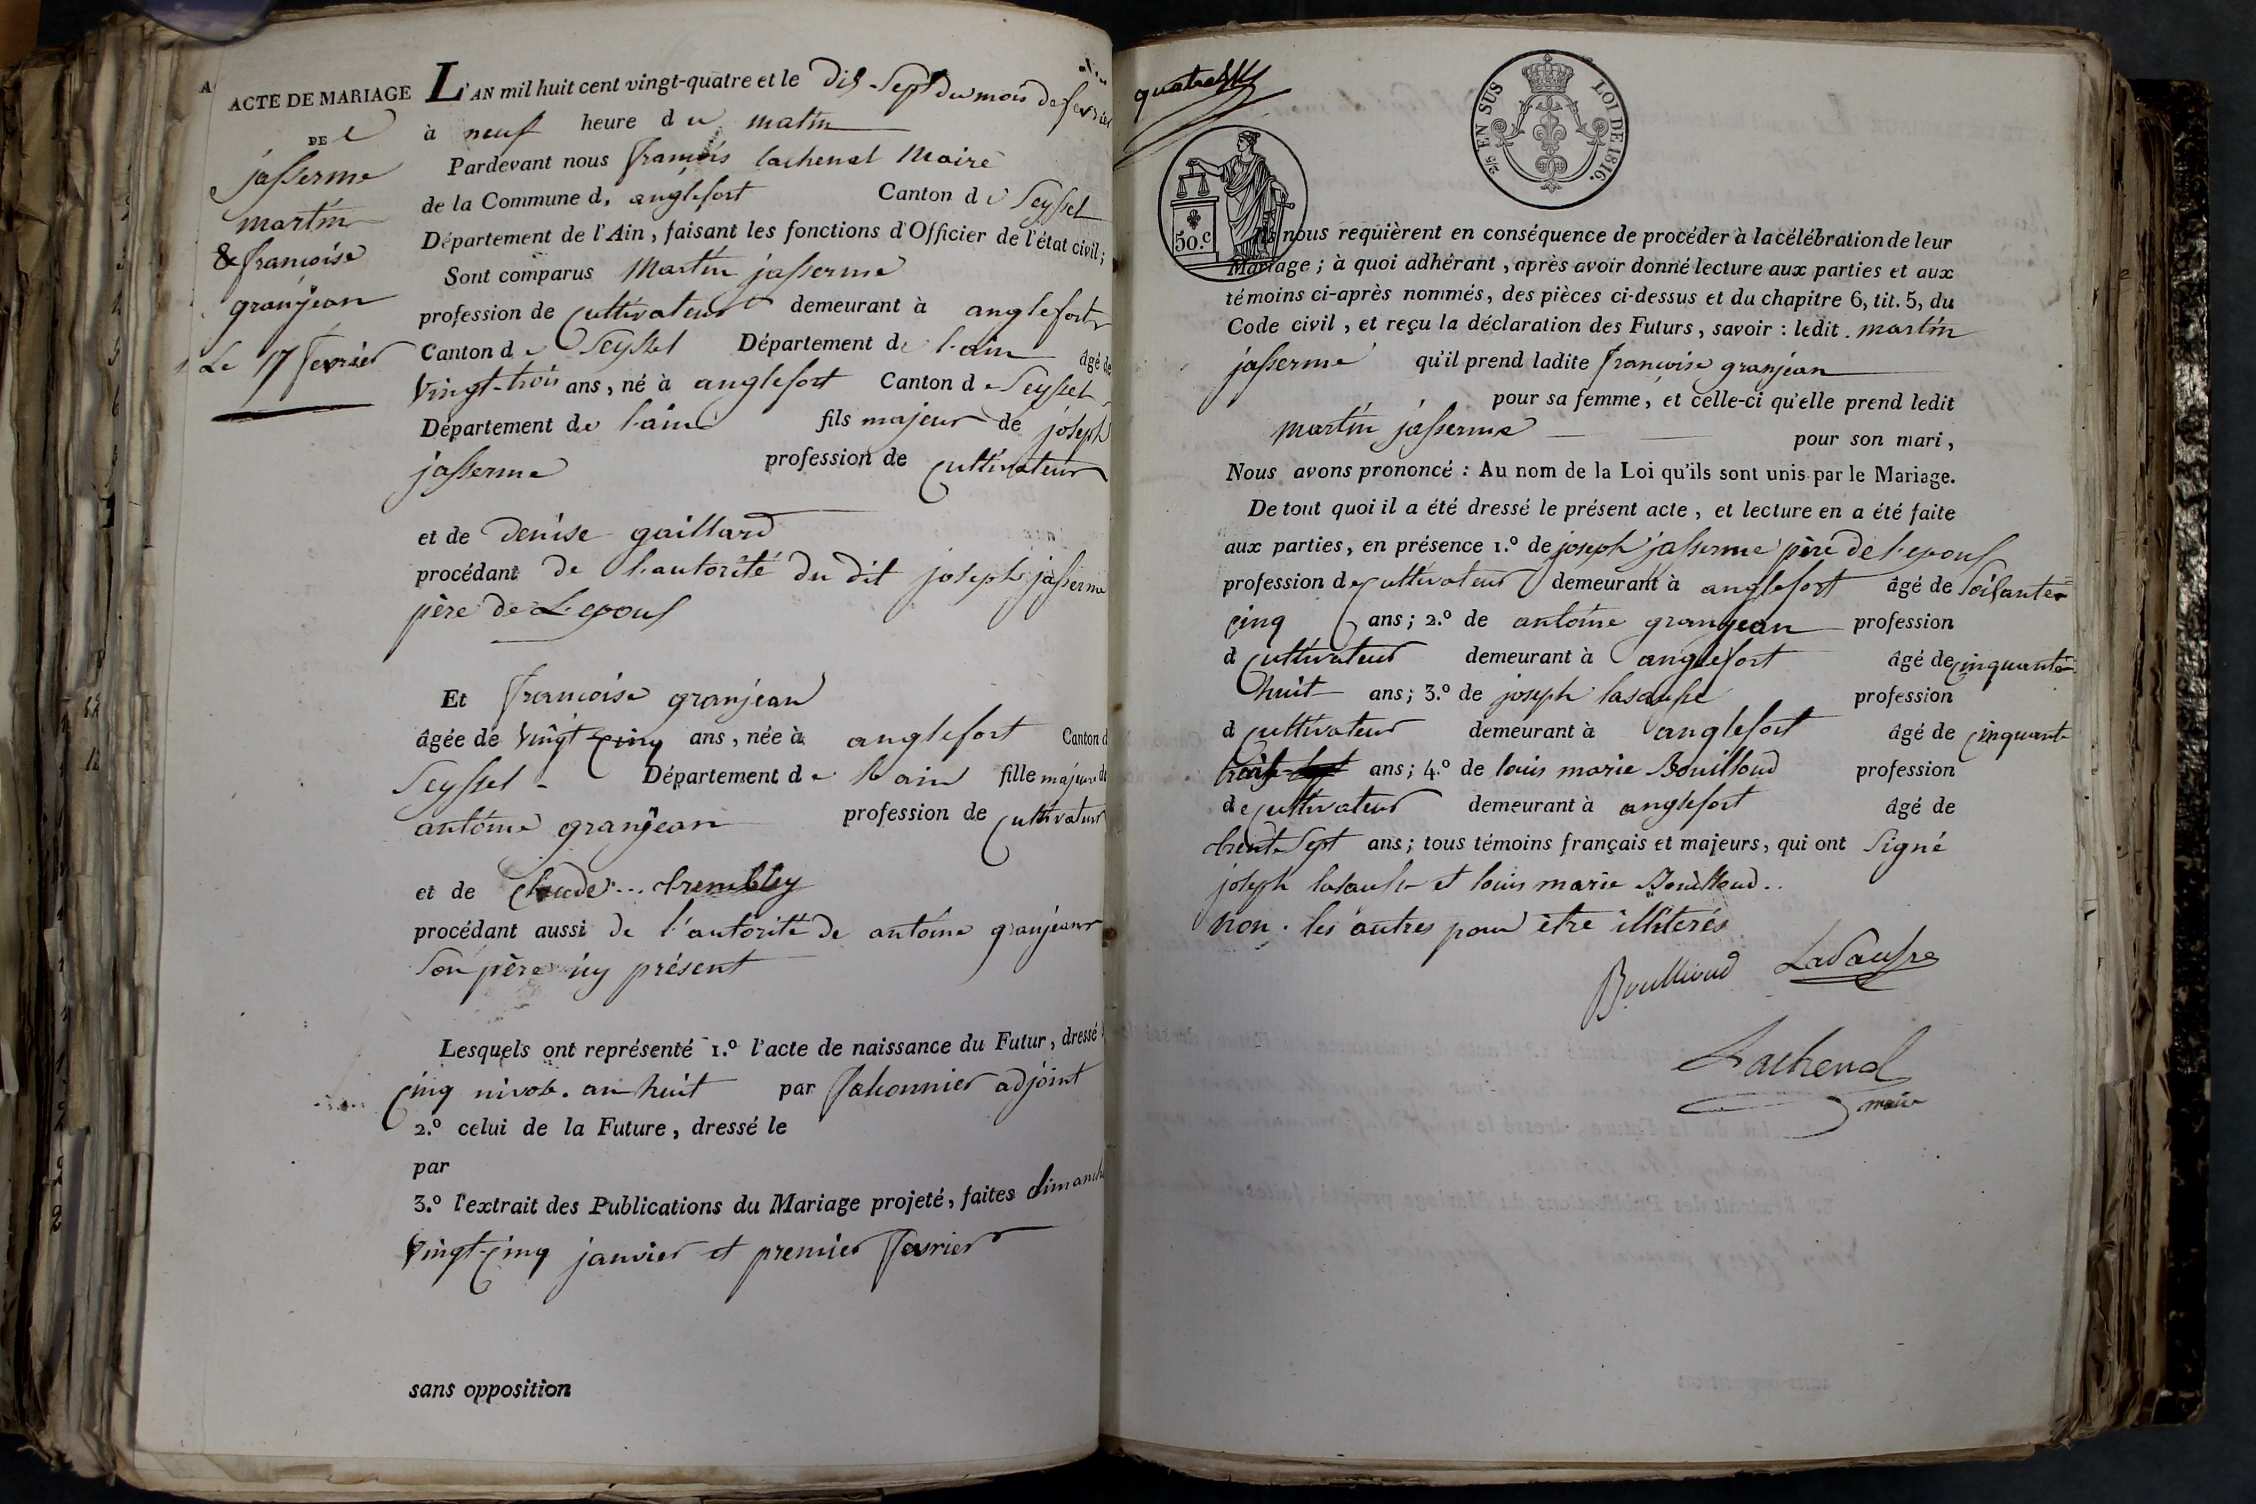 ACTE DE MARIAGE
DE
jasserme
martin
& francoise
granjean
Le 17 fevrier
L'AN mil huit cent vingt-quatre et le dix Sept du mois de fevrier
à neuf heure du matin
Pardevant nous françois lachenal Maire
de la Commune d, anglefort Canton de Seyssel
Département de l'Ain, faisant les fonctions d'Officier de l'état civil;
Sont comparus Martin jasserme
profession de Cultivateur demeurant à anglefort
Canton de Seyssel Département de l'ain âgé de
Vingt-trois ans, né à anglefort Canton de Seyssel
Département de l'ain fils majeur de joseph
jasserme profession de Cultivateur
et de Denise gaillard
procédant de l'autorité du dit joseph jasserme
père de L'epoux
Et francoise granjean
âgée de Vingt Cinq ans, née à anglefort Canton d
Seyssel Département de l'ain fille majeure de
antoine granjean profession de Cultivateur
et de Claude trembley
procédant aussi de l'autorité de antoine granjean
Son père icy présent
Lesquels ont représenté 1.º l'acte de naissance du Futur, dressé
Cinq nivose. an huit par adjoint
2.º celui de la Future, dressé le
par
3.º l'extrait des Publications du Mariage projeté, faites dimanche
Vingt-Cinq janvier et premier fevrier
sans opposition
2/5 EN SUS LOI DE 1816.
50.c
Ils nous requièrent en conséquence de procéder à la célébration de leur
Mariage; à quoi adhérant, après avoir donné lecture aux parties et aux
témoins ci-après nommés, des pièces ci-dessus et du chapitre 6, tit. 5, du
Code civil, et reçu la déclaration des Futurs, savoir: ledit. martin
jasserme qu'il prend ladite francoise granjean
pour sa femme, et celle-ci qu'elle prend ledit
martin jasserme pour son mari,
Nous avons prononcé: Au nom de la Loi qu'ils sont unis par le Mariage.
De tout quoi il a été dressé le présent acte, et lecture en a été faite
aux parties, en présence 1.º de joseph jasserme père de l'epoux
profession de Cultivateur demeurant à anglefort âgé de Soixante
Cinq ans; 2.º de antoine granjean profession
d Cultivateur demeurant à anglefort âgé de cinquante
huit ans; 3.º de joseph lasausse profession
d Cultivateur demeurant à anglefort âgé de cinquante
ans; 4.º de louis marie Bouilloud profession
de Cultivateur demeurant à anglefort âgé de
trente Sept ans; tous témoins français et majeurs, qui ont Signé
joseph lasausse et louis marie Bouilloud..
non. les autres pour être illiterés
Boullioud Lasausse
Lachenal
maire